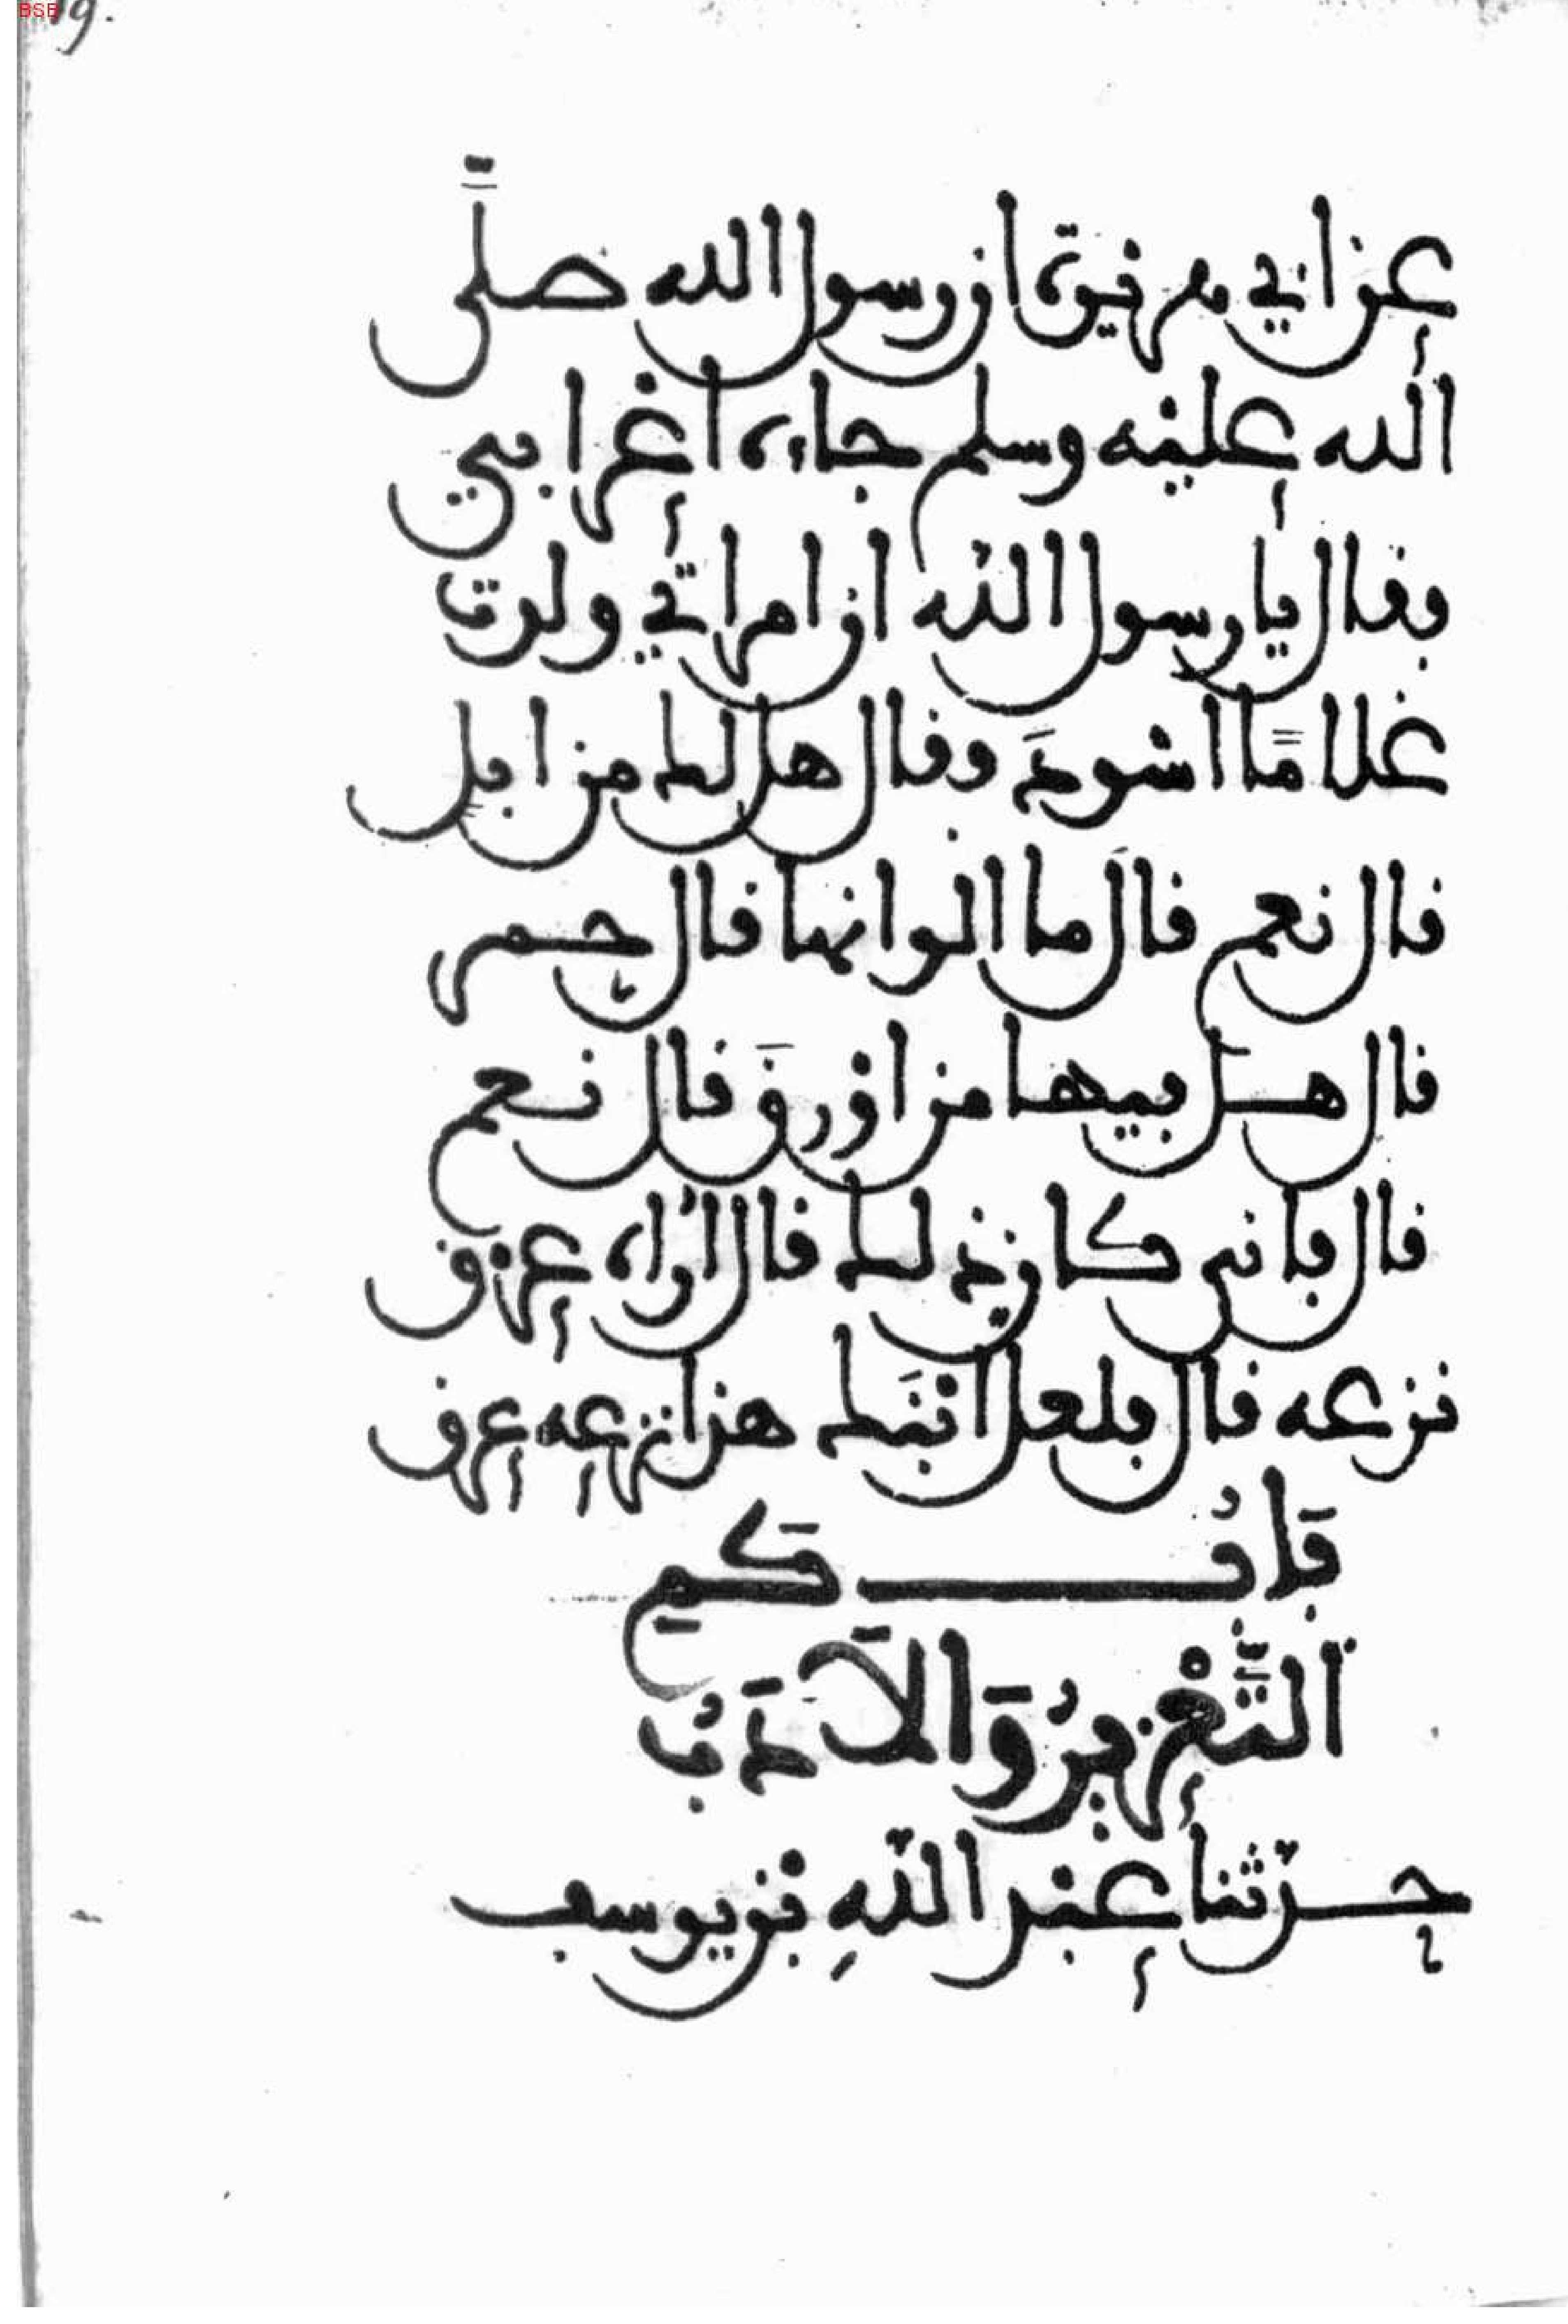 BSB 19.
عن ابي هريرة ان رسول الله صلى
الله عليه وسلم جاءه اعرابي
فقال يا رسول الله ان امراتي ولدت
غلامًا اسودَ فقال هل لك من ابل
قال نعم قال ما الوانها قال حمر
قال هل فيها من اورقَ قال نعم
قال فانى كان ذلك قال اُراه عرق
نزعه قال فلعل ابنَك هذا نزعه عرق
بَابُ كَم
التَّعْزِيرُ وَالاَدَبُ
حدثنا عبد اللهِ بن يوسف